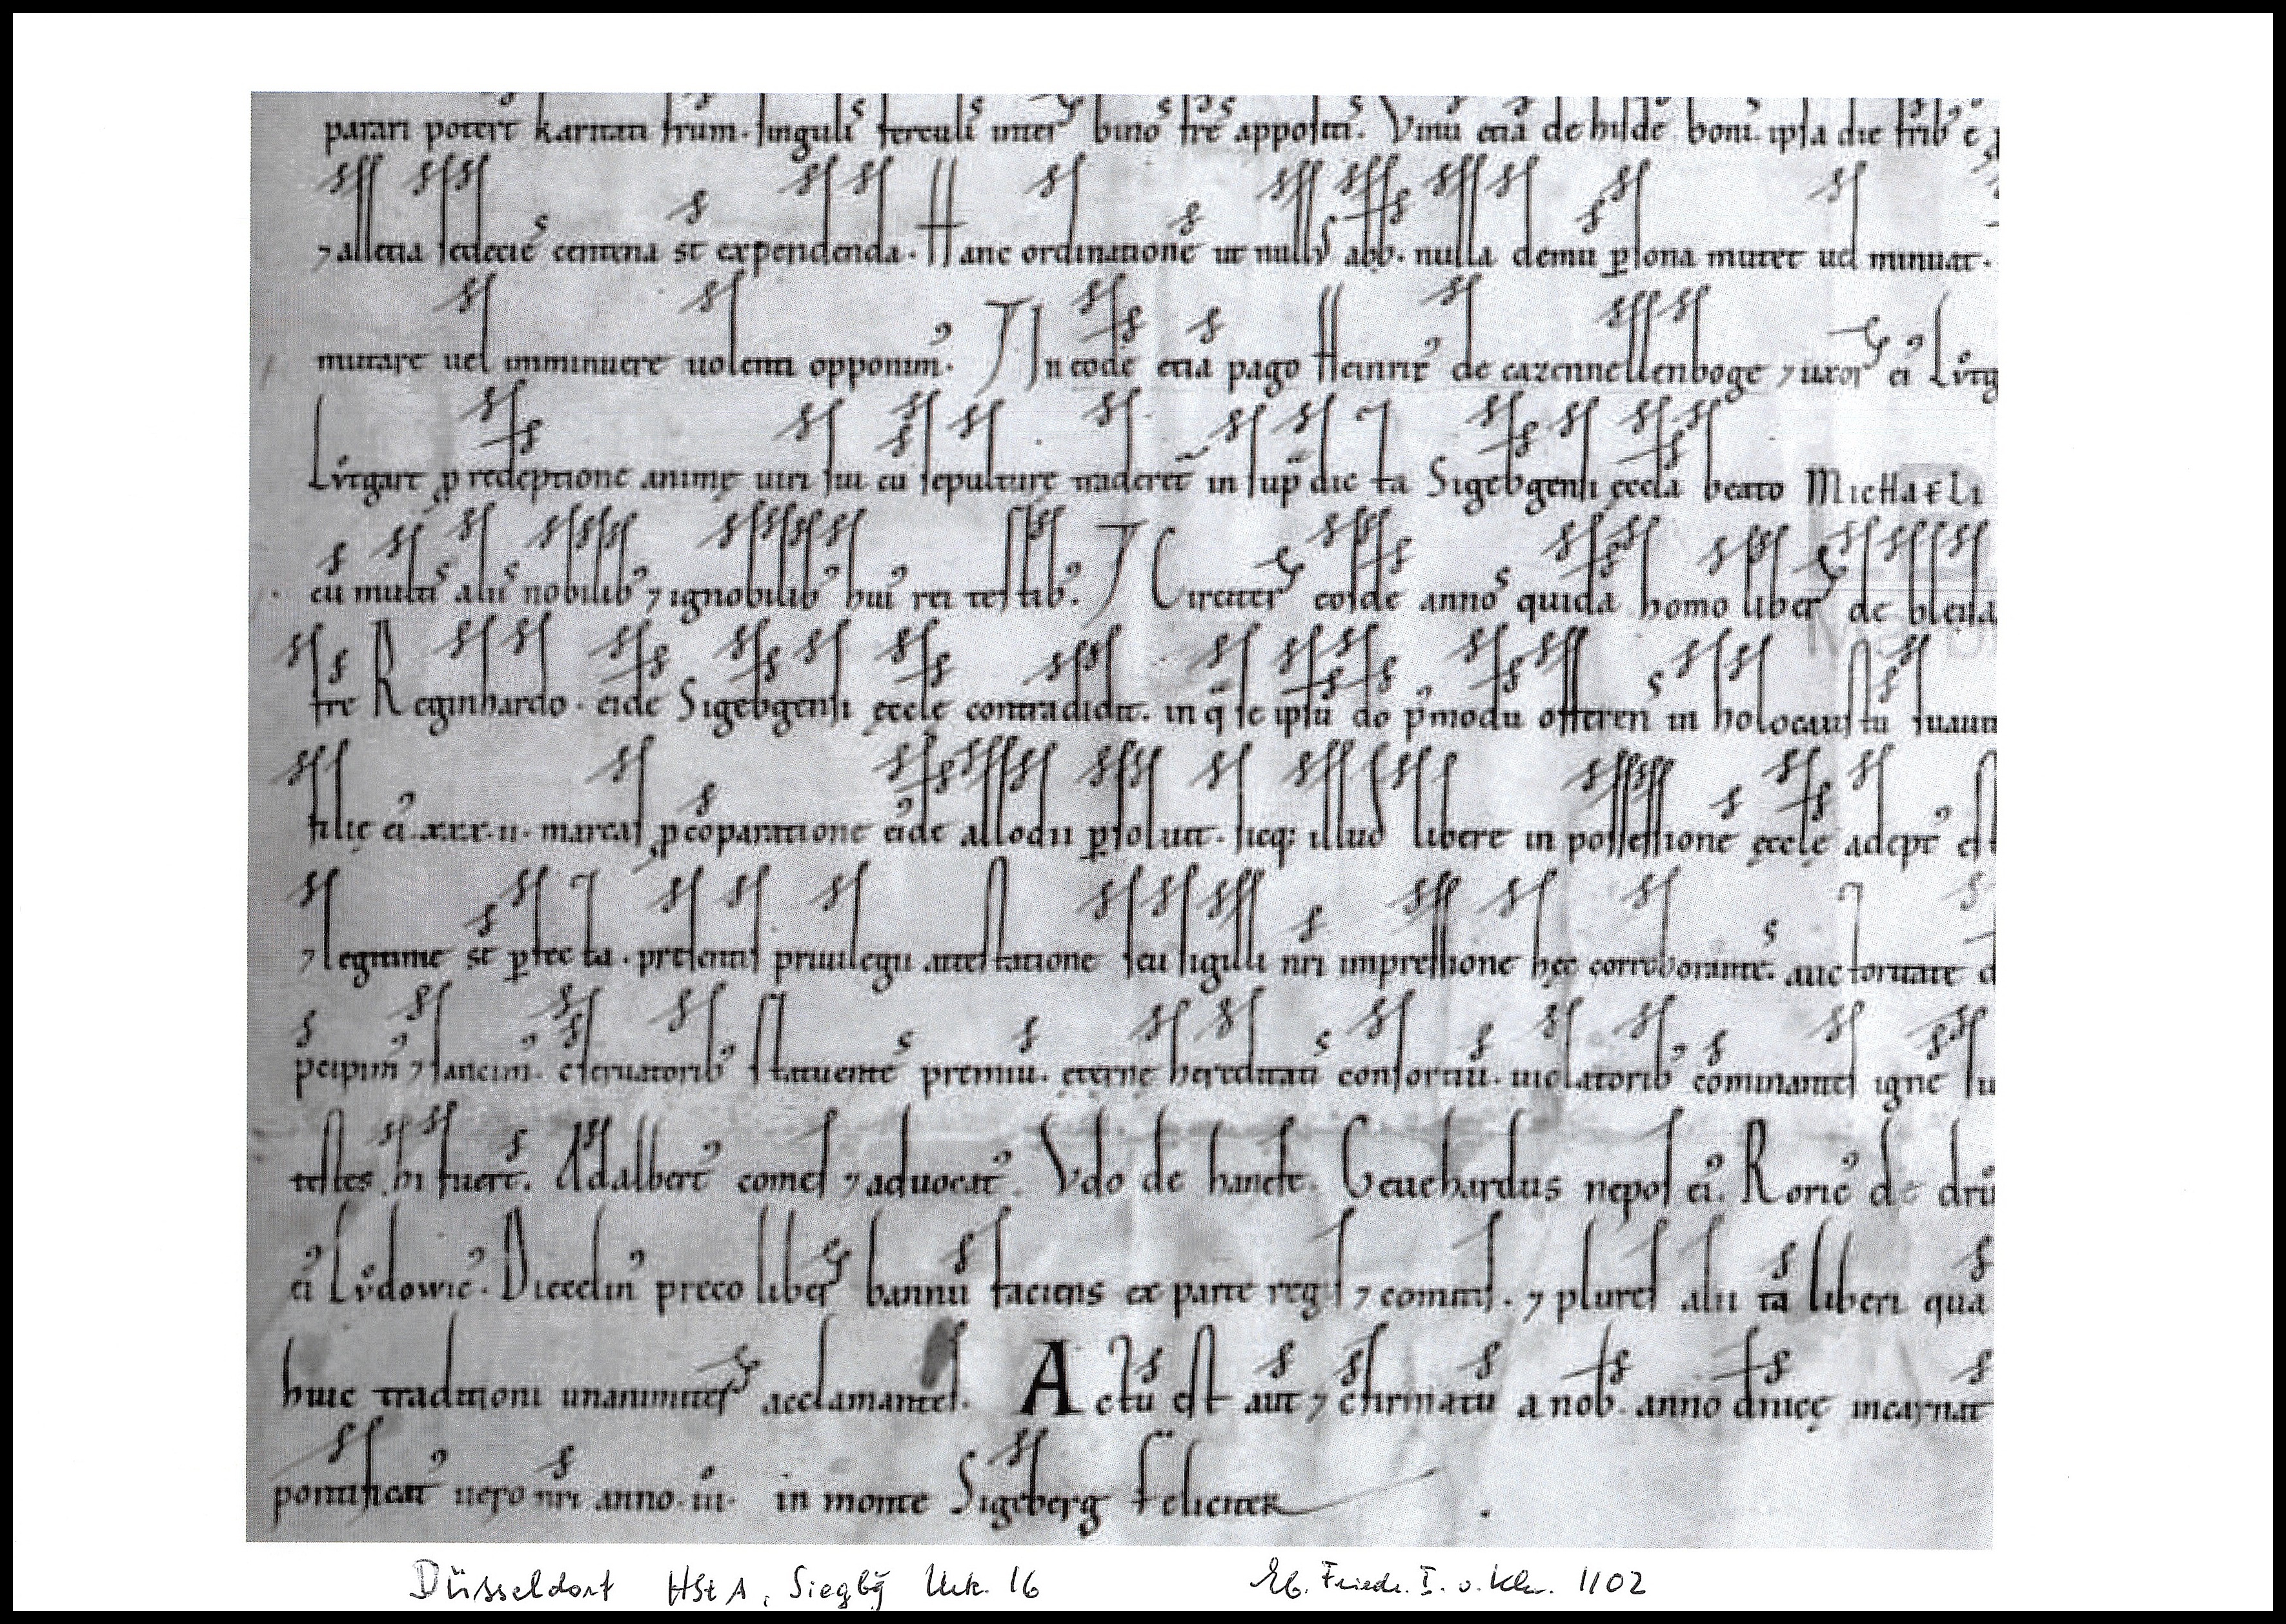 parari poterit karitati frum. singuli ferculi inter binos fres appositi. Vinu etia de hilde boni. ipsa die frib e
⁊ alletia sedecies centena st expendenda. Hanc ordinatione ut nullus abb. nulla demu psona mutet uel minuat.
mutare uel imminuere uolenti opponim᾿. In eode etia pago Heinric᾿ de cazennellenboge ⁊ uxor ei᾿ Lutg
Lutgart p redeptione anime uiri sui cu sepulture traderet insup die ta Sigebgensi eccla beato MicHaeLi
cu multis aliis nobilib᾿ ⁊ ignobilib᾿ hui᾿ rei testib᾿. Circiter eosde annos quida homo liber de bleisa
fre Reginhardo. eide Sigebgensi eccle contradidit. in q se ipsu do pmodu offeren in holocaustu suaui
filie ei᾿ .xxx.ii. marcas p coparatione eide allodii psoluit. sicq; illud libere in possessione eccle adept᾿ est
⁊ legitime st pfecta. presentis priuilegii attestatione seu sigilli nri impressione hec corroborantes. auctoritate d
pcipim᾿ ⁊ sancim᾿. cseruatorib᾿ statuentes premiu. eterne hereditatis consortiu. uiolatorib᾿ cominantes igne su
testes hi fuert. Adalbert᾿ comes ⁊ aduocat᾿. Vdo de hanefe. Geuehardus nepos ei᾿. Roric᾿ de dru
ei᾿ Ludowic᾿. Diecelin᾿ preco liber bannu faciens ex parte regis ⁊ comitis. ⁊ plures alii ta liberi qua
huic traditioni unanimiter acclamantes. Actu est aut ⁊ cfirmatu a nob. anno dnice incarnat
pontificat᾿ uero nri anno. iii. in monte Sigeberg feliciter
Düsseldorf HStA, Siegbg Urk. 16 Eb. Friedr. I. v. Kln. 1102